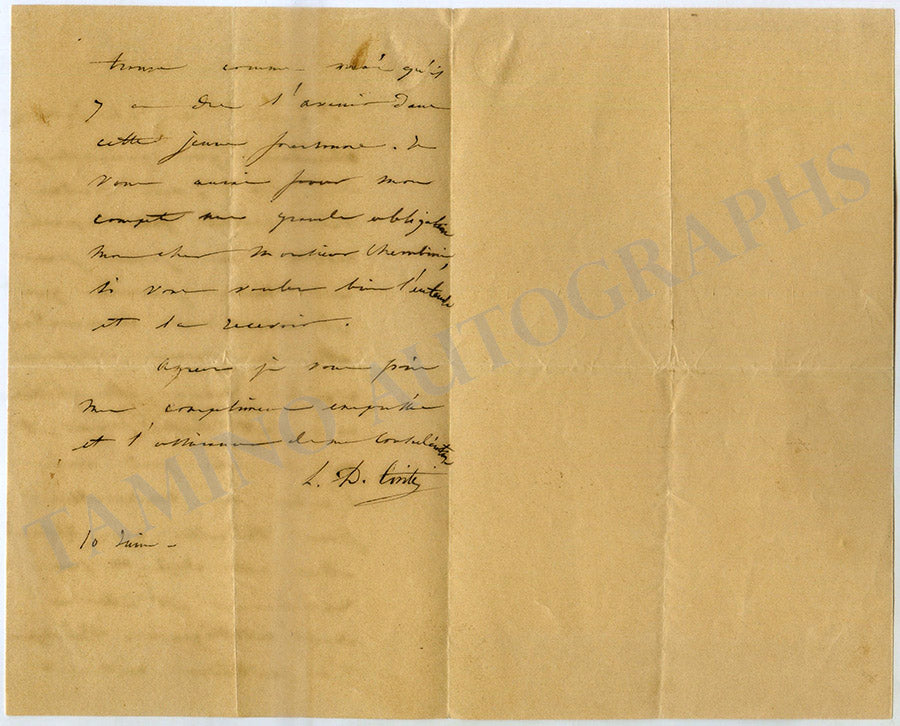 trouve comme moi qu'il
y a de l'avenir dans
cette jeune personne. Je
vous aurai pour mon
compte une grande obligation
mon cher Monsieur Cherubini,
si vous voulez bien l'entendre
et la recevoir.
Agréez je vous prie
mes compliments empressés
et l'assurance de ma considération
L. D.
10 Juin
TAMINO AUTOGRAPHS